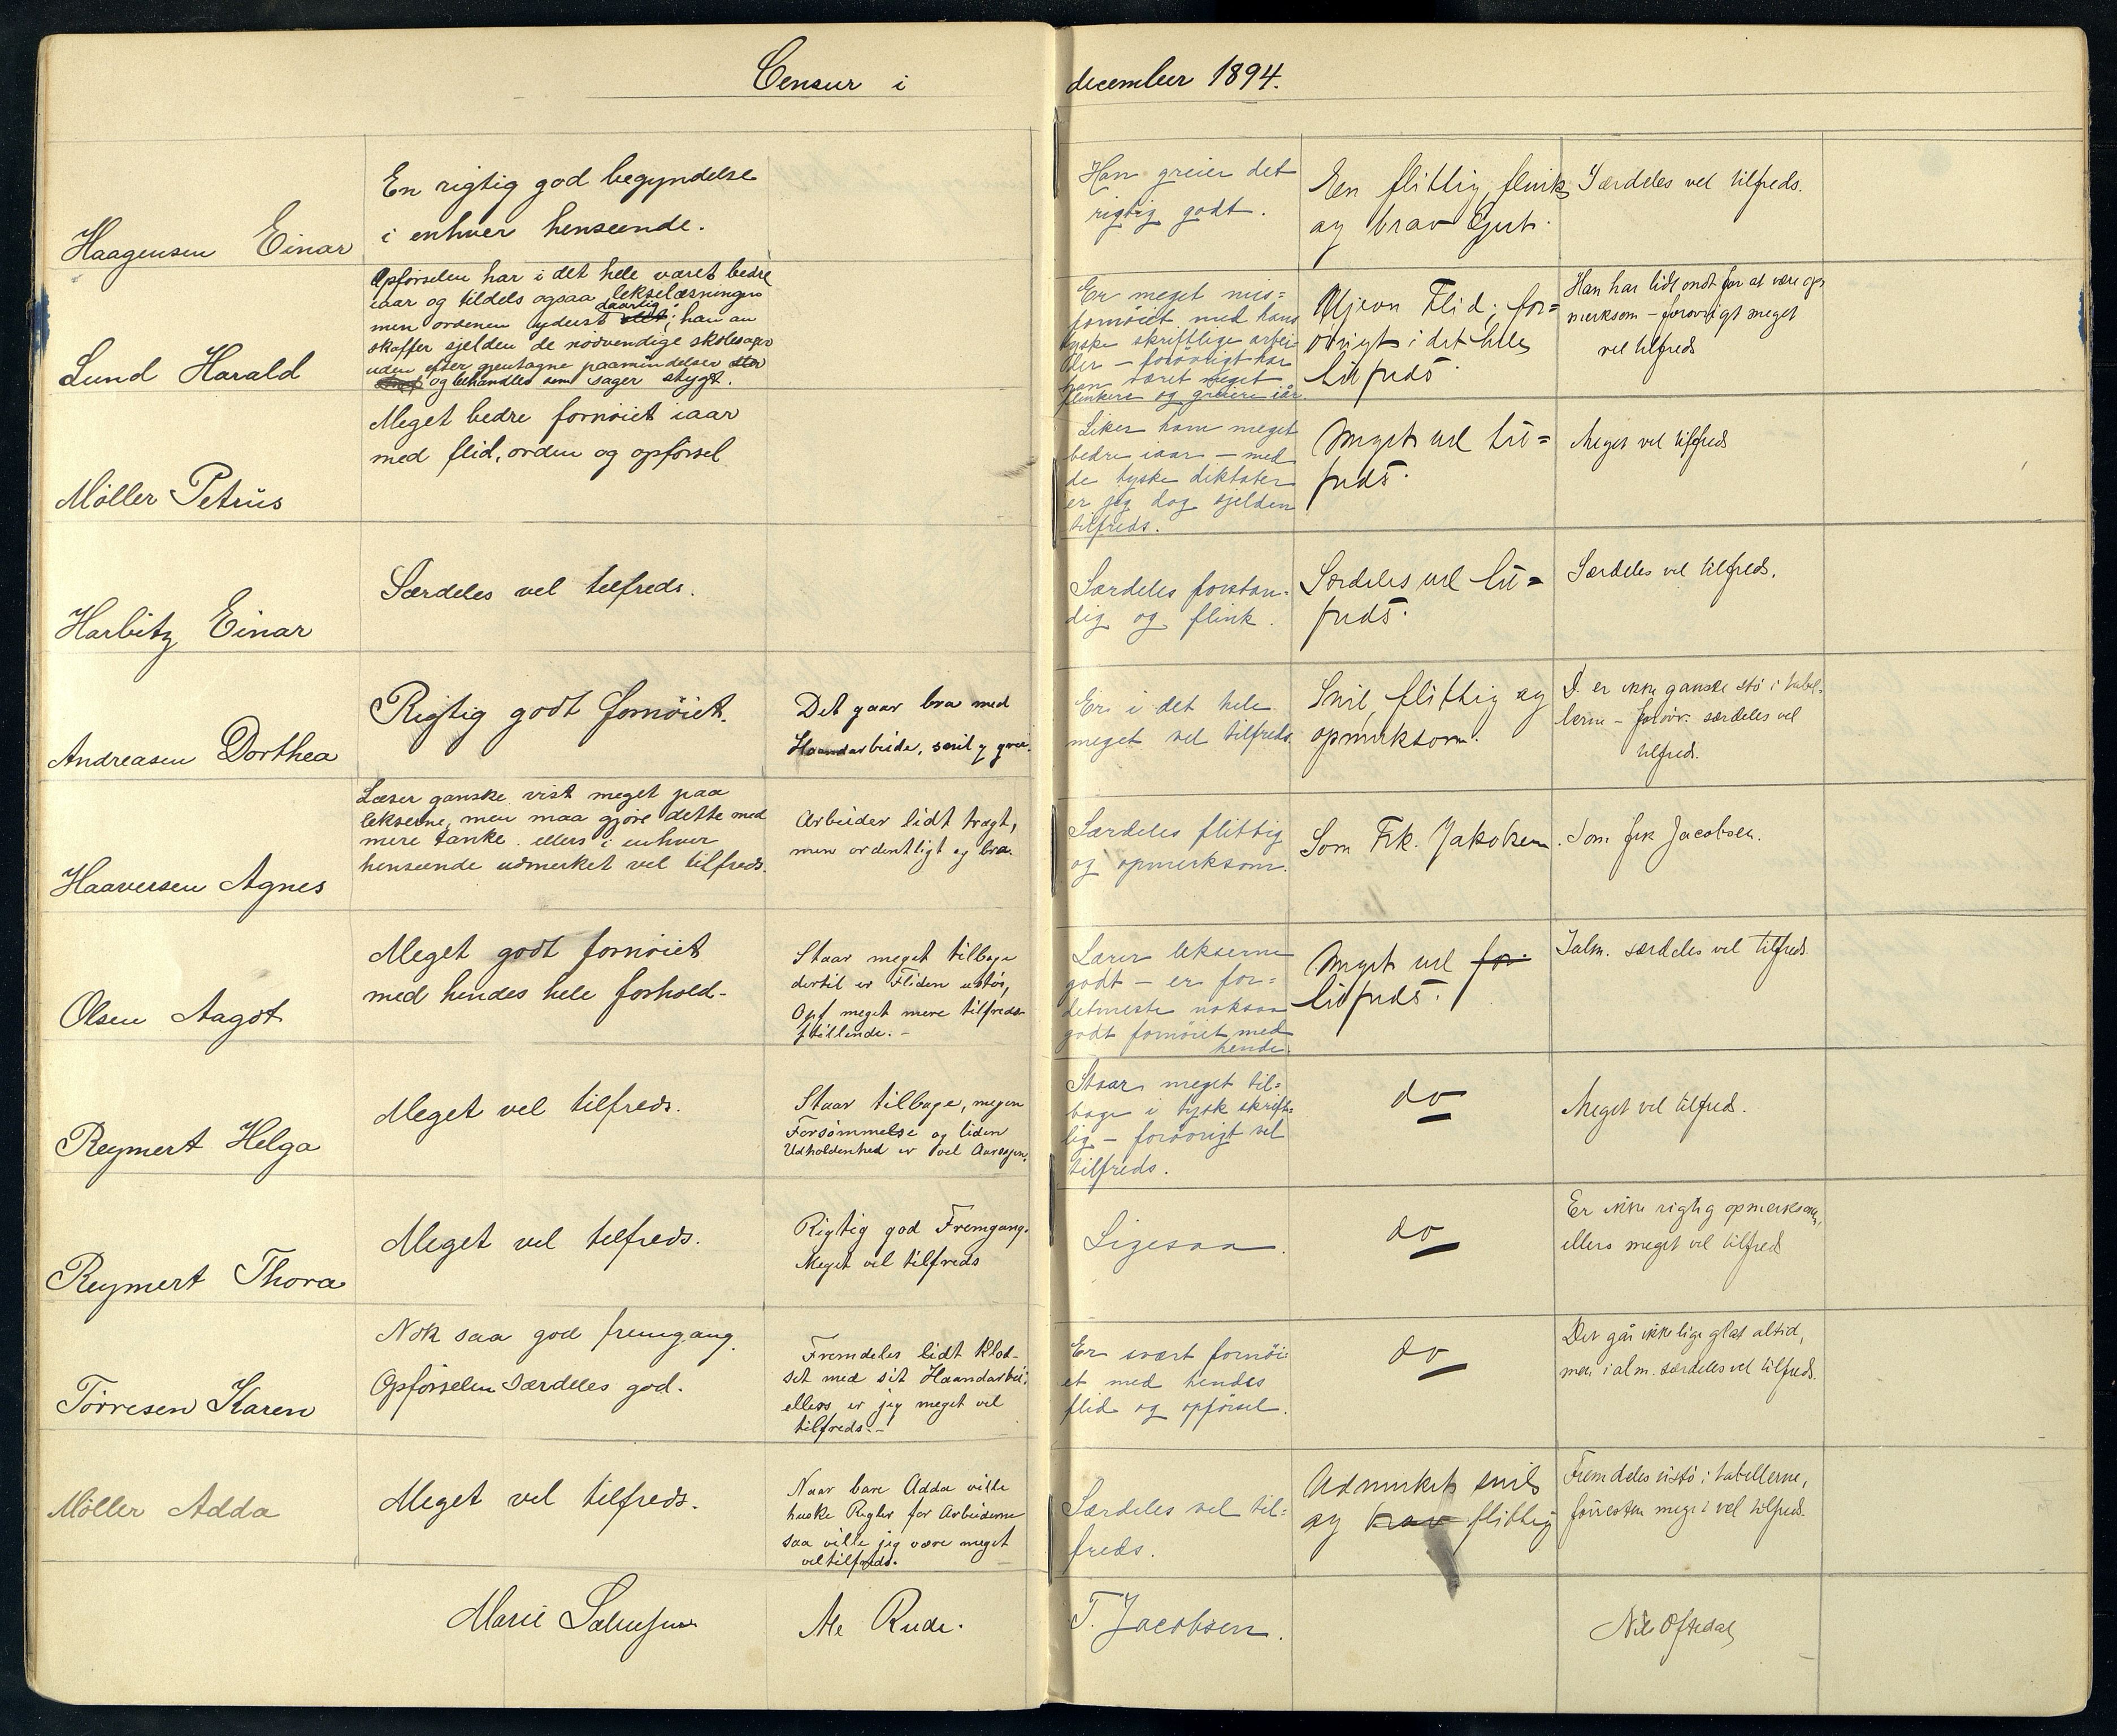 Censur i december 1894.
Haagensen Einar
En rigtig god begyndelse
i enhver henseende.
Han greier det
rigtig godt.
En flittig, flink
og brav Gut.
Særdeles vel tilfreds.
Lund Harald
Opførselen har i det hele været bedre
iaar og tildels ogsaa lekselæsningen
men ordenen yderst daarlig; han an
skaffer sjelden de nødvendige skolesager
uden efter gjentagne paamindelser
og behandler sine sager stygt.
Er meget mis=
fornøiet med hans
tyske skriftlige arbei
der – forøvrigt har
han været meget
flinkere og greiere iår.
Ujevn Flid; for=
øvrigt i det hele
tilfreds.
Han har lidt ondt for at være op
merksom – forøvrigt meget
vel tilfreds
Møller Petrus
Meget bedre fornøiet iaar
med flid, orden og opførsel
Liker ham meget
bedre iaar – med
de tyske diktater
er jeg dog sjelden
tilfreds.
Meget vel til=
freds.
Meget vel tilfreds
Harbitz Einar
Særdeles vel tilfreds.
Særdeles forstan-
dig og flink.
Særdeles vel til=
freds.
Særdeles vel tilfreds.
Andreasen Dorthea
Rigtig godt fornøiet.
Det gaar bra med
Haandarbeide, snil og
Er i det hele
meget vel tilfreds.
Snil, flittig og
opmerksom.
D. er ikke ganske stø i tabel-
lerne – forøvr. særdeles vel
tilfreds.
Haaversen Agnes
Læser ganske vist meget paa
lekserne, men maa gjøre dette med
mere tanke. ellers i enhver
henseende udmerket vel tilfreds.
Arbeider lidt tragt,
men ordentligt og bra.
Særdeles flittig
og opmerksom.
Som Frk. Jakobsen.
Som frk Jacobsen.
Olsen Aagot
Meget godt fornøiet
med hendes hele forhold-
Staar meget tilbage
dertil er Fliden ustø,
Opf meget mere tilfreds-
stillende. -
Lærer lekserne
godt – er for=
detmeste noksaa
godt fornøiet med
hende.
Meget vel for-
tilfreds.
Ialm. særdeles vel tilfreds.
Reymert Helga
Meget vel tilfreds.
Staar tilbage, megen
Forsømmelse og liden
Udholdenhed er vel Aarsagen.
Staar meget til=
bage i tysk skrift=
lig – forøvrigt vel
tilfreds.
do
Meget vel tilfreds.
Reymert Thora
Meget vel tilfreds.
Rigtig god Fremgang.
Meget vel tilfreds
Ligesaa.
do
Er ikke rigtig opmerksom,
ellers meget vel tilfreds
Tørresen Karen
Nok saa god fremgang.
Opførselen særdeles god.
Fremdeles lidt klod-
set med sit Haandarbei,
ellers er jeg meget vel
tilfreds.-
Er svært fornøi
et med hendes
flid og opførsel.
do
Det går ikke lige glat altid,
men i alm. særdeles vel tilfreds.
Møller Adda
Meget vel tilfreds.
Naar bare Adda vilde
huske Regler for Arbeiderne
saa vilde jeg være meget
vel tilfreds.
Særdeles vel til=
freds.
Udmerket snil
og brav flittig
Fremdeles ustø i tabellerne,
forresten meget vel tilfreds.
Marie
Me Rude.
T. Jacobsen.
Nils Oftedal